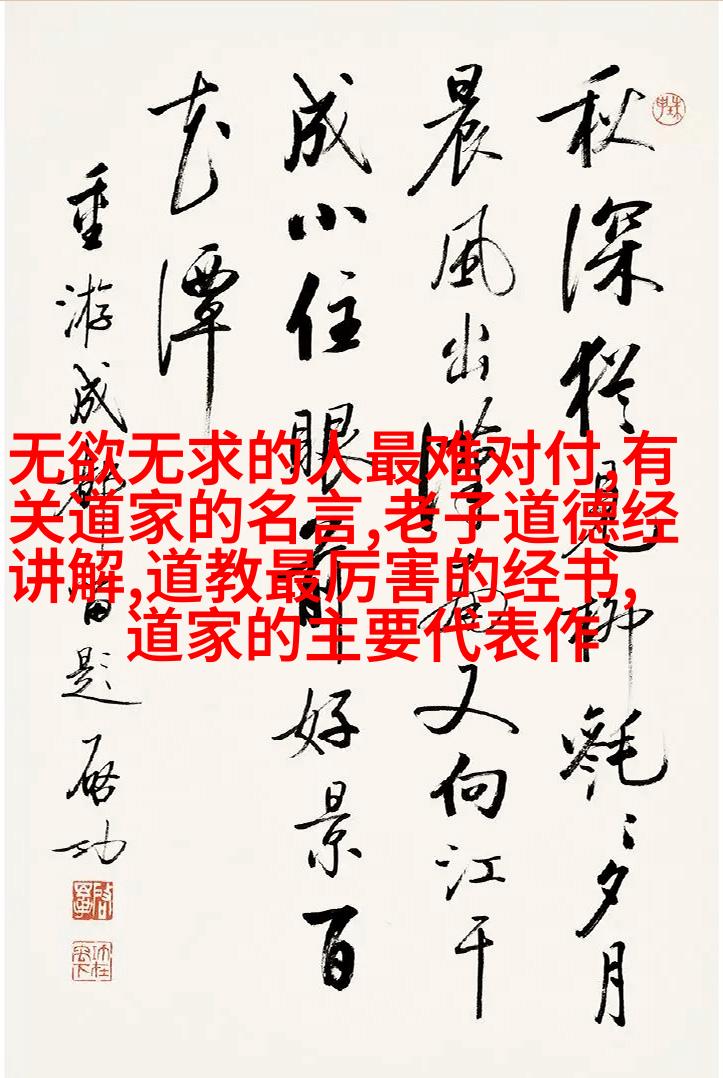 秋深犹见柳毵〻夕月
晨风出汉南又向江干
成小住眼前好景百
花潭
重游成都留题
启功
无欲无求的人最难对付,有
关道家的名言,老子道德经
讲解,道教最厉害的经书,
道家的主要代表作